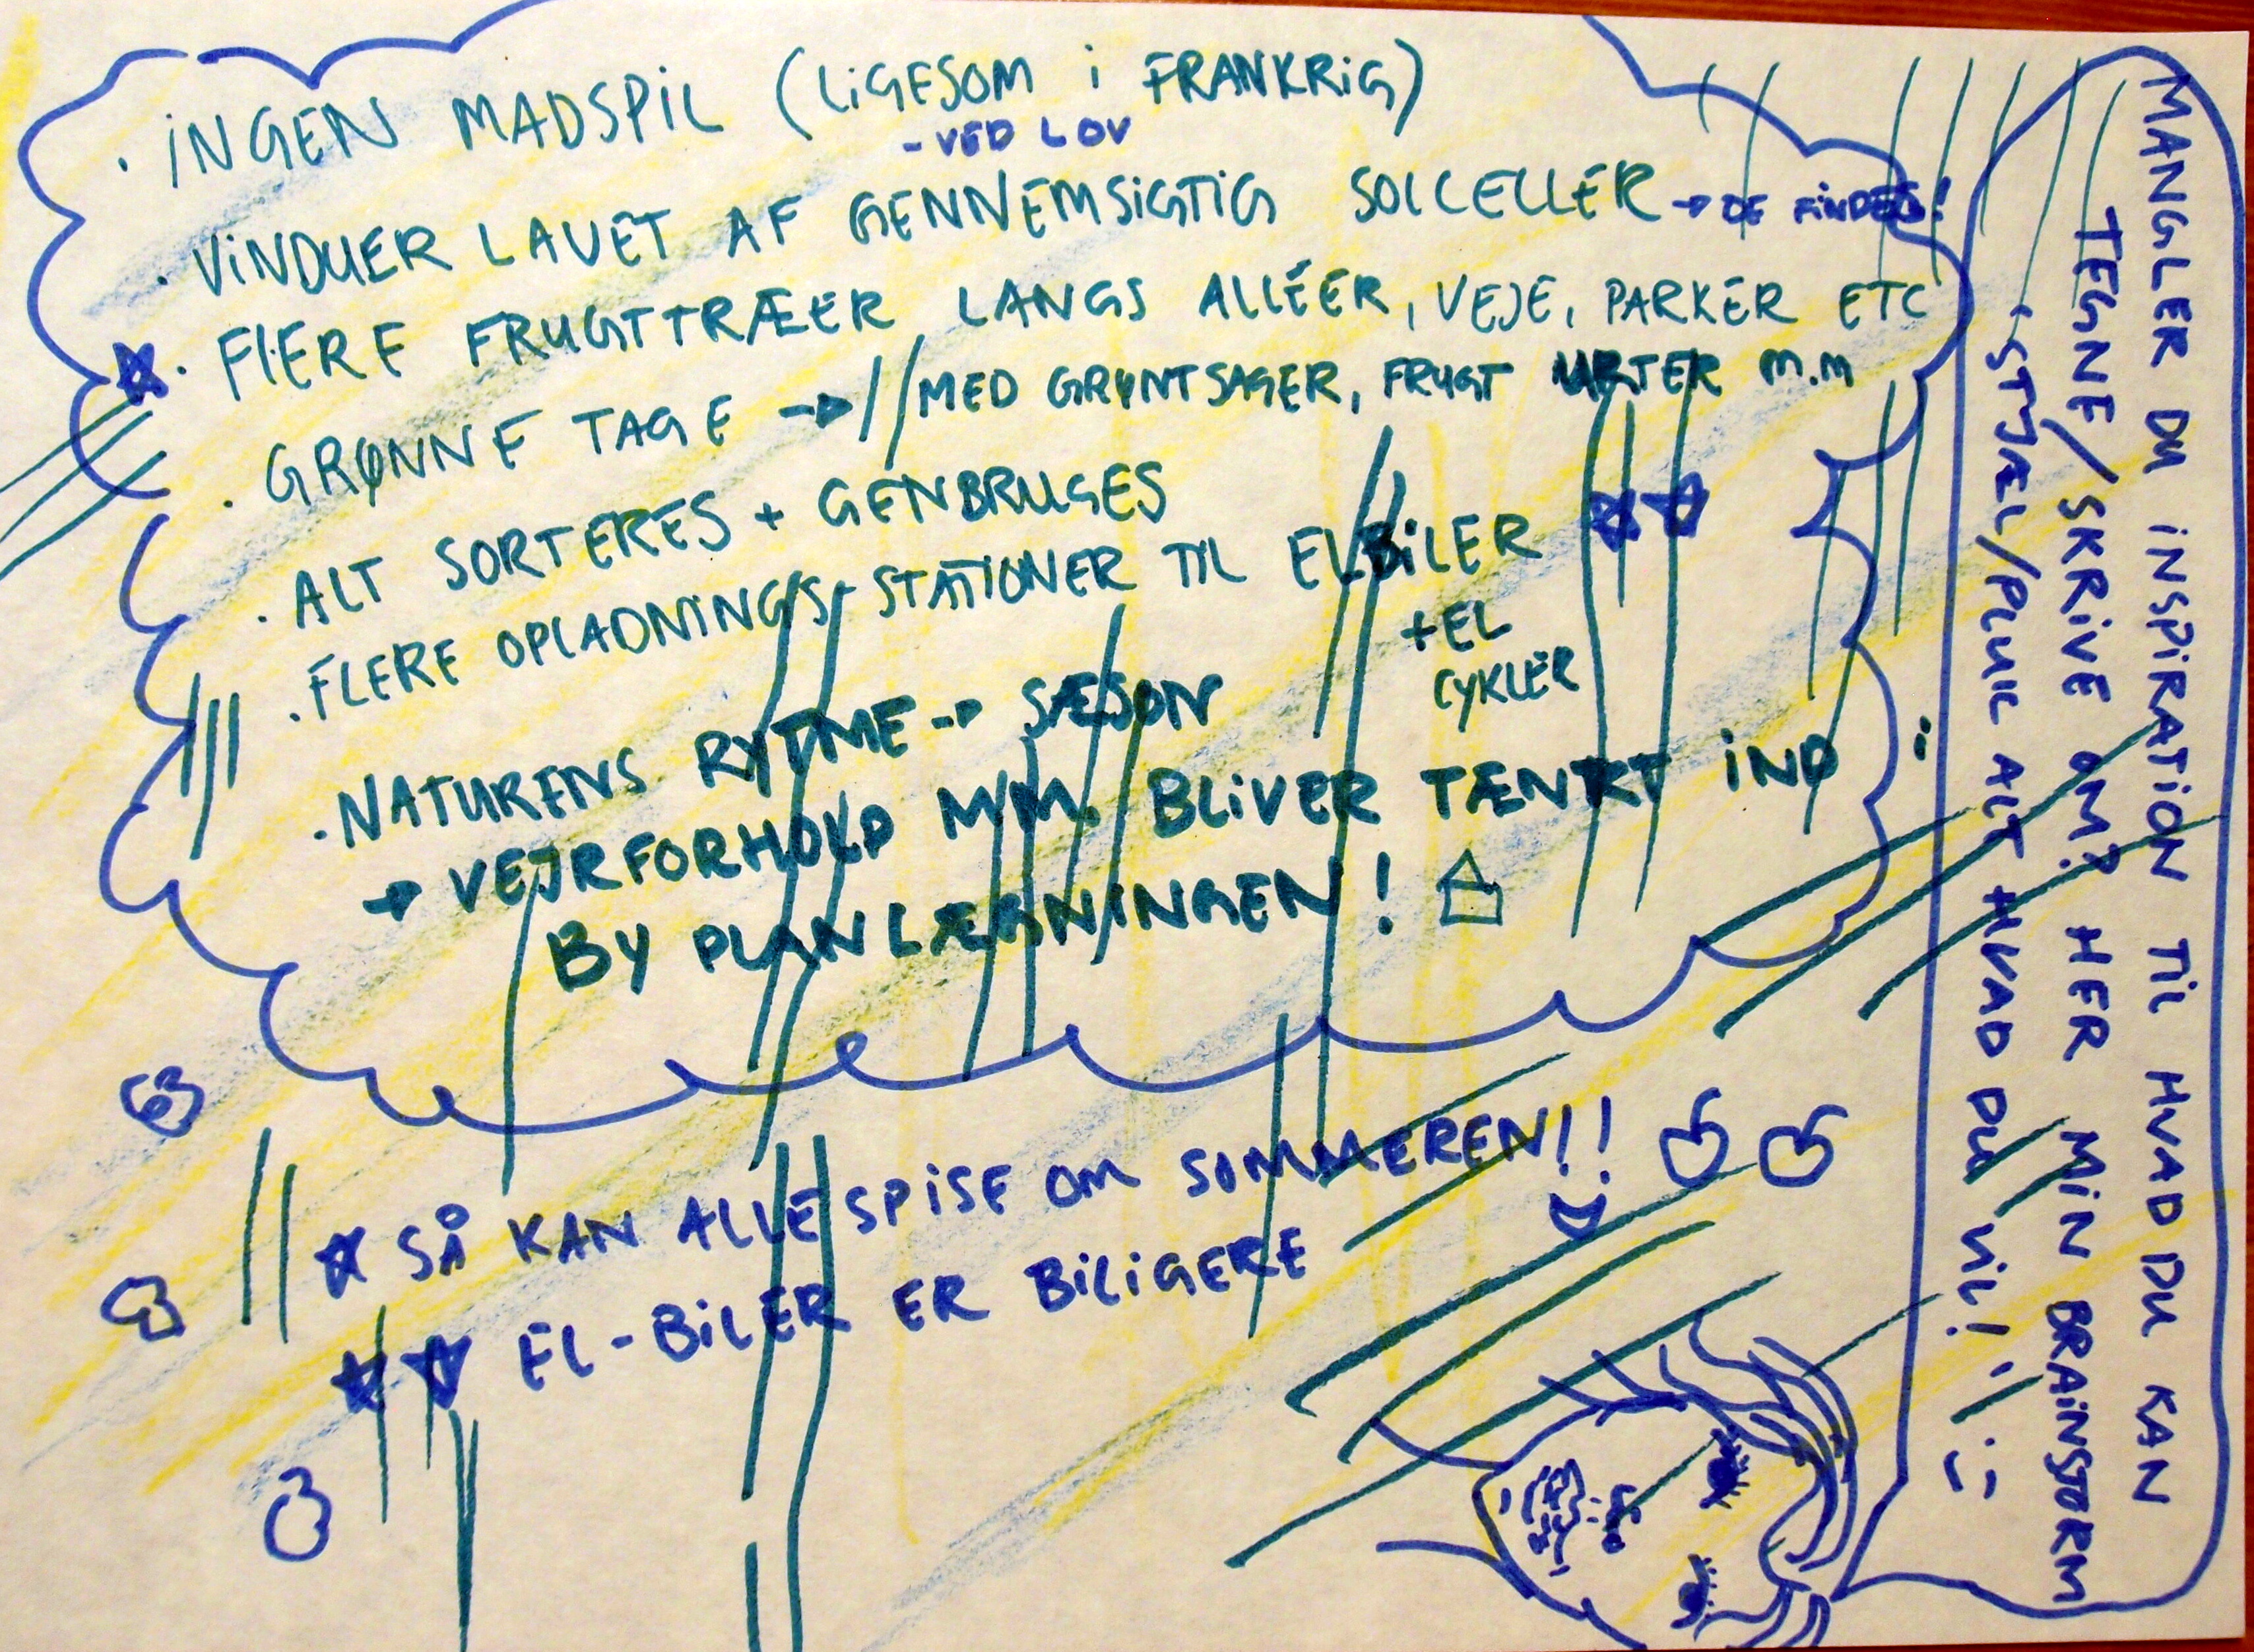 . INGEN MADSPIL (LIGESOM I FRANKRIG)
- VED LOV
. VINDUER LAVET AF GENNEMSIGTIG SOLCELLER → DE FINDES!
☆ . FLERE FRUGTTRÆER LANGS ALLÉER, VEJE, PARKER ETC
. GRØNNE TAGE → // MED GRØNTSAGER, FRUGT URTER M.M
. ALT SORTERES + GENBRUGES
. FLERE OPLADNINGS-STATIONER TIL ELBILER ☆☆
+ EL
CYKLER
. NATURENS RYTME → SÆSON
→ VEJRFORHOLD M.M. BLIVER TÆNKT IND I
BY PLANLÆGNINGEN!
☆ SÅ KAN ALLE SPISE OM SOMMEREN!!
☆☆ EL-BILER ER BILIGERE
MANGLER DU INSPIRATION TIL HVAD DU KAN
TEGNE/SKRIVE OM? HER MIN BRAINSTORM
, STJÆL/PLUK ALT HVAD DU VIL! " :)